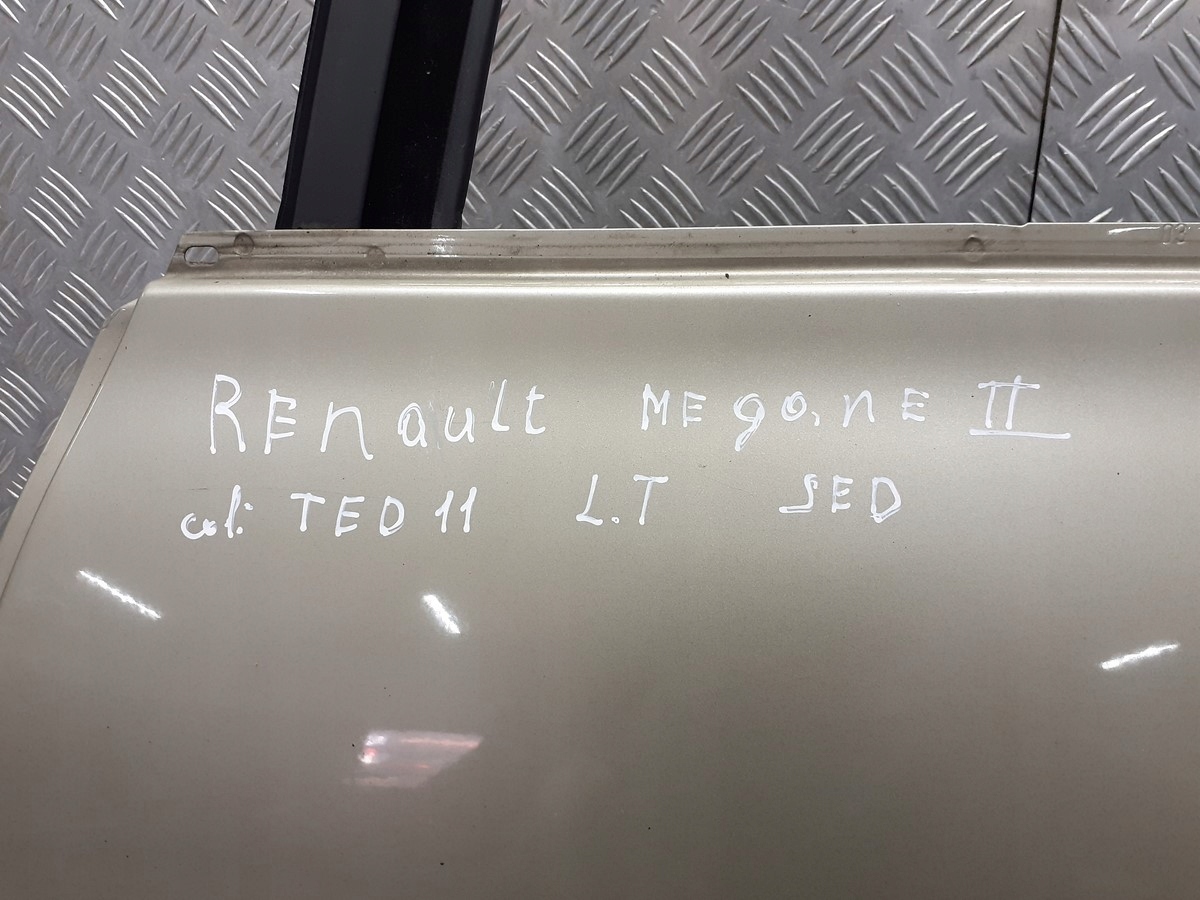 REnault MEgane II
col: TED11 L.T SED